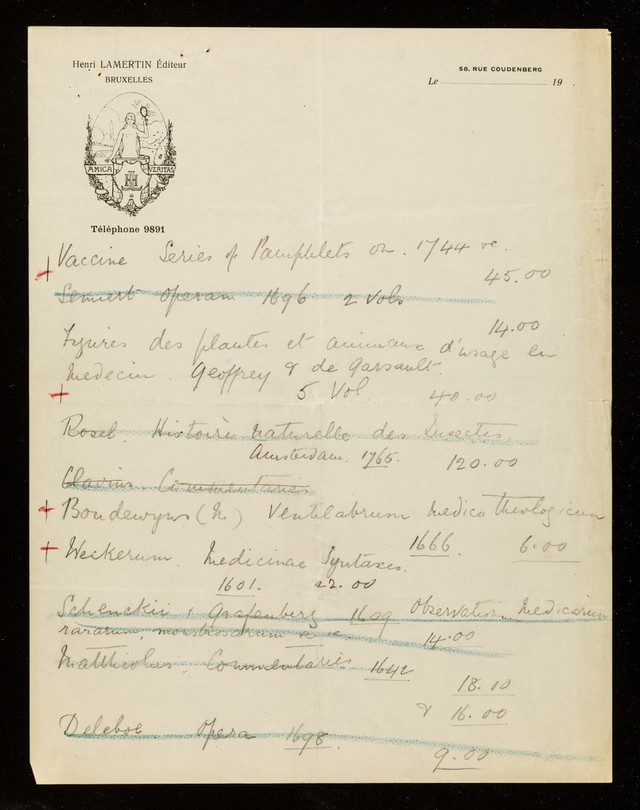 Henri LAMERTIN Éditeur
BRUXELLES
58, RUE COUDENBERG
Le 19
AMICA VERITAS
Téléphone 9891
Vaccine Series of Pamphlets on. 1744 &c.
45.00
Sennert Operam 1696 2 Vols
14.00
Figures des plantes et animaux d'usage en
Medecin. Geoffrey & de Garsault.
5 Vol. 40.00
Rosel. Histoire Naturelle des Insectes
Amsterdam. 1765. 120.00
Clavius Commentaries
Boudewyns (M) Ventilabrum Medico Theologicum
1666. 6.00
Weckerum. Medicinae Syntaxes.
1601. 22.00
Schenckii & Grafenberg 1609 Observation Medicarum
rararum, monstrosarum &c. 14.00
Matthiolus. Commentaries 1642
18.00
& 16.00
Deleboe. Opera 1698.
9.00